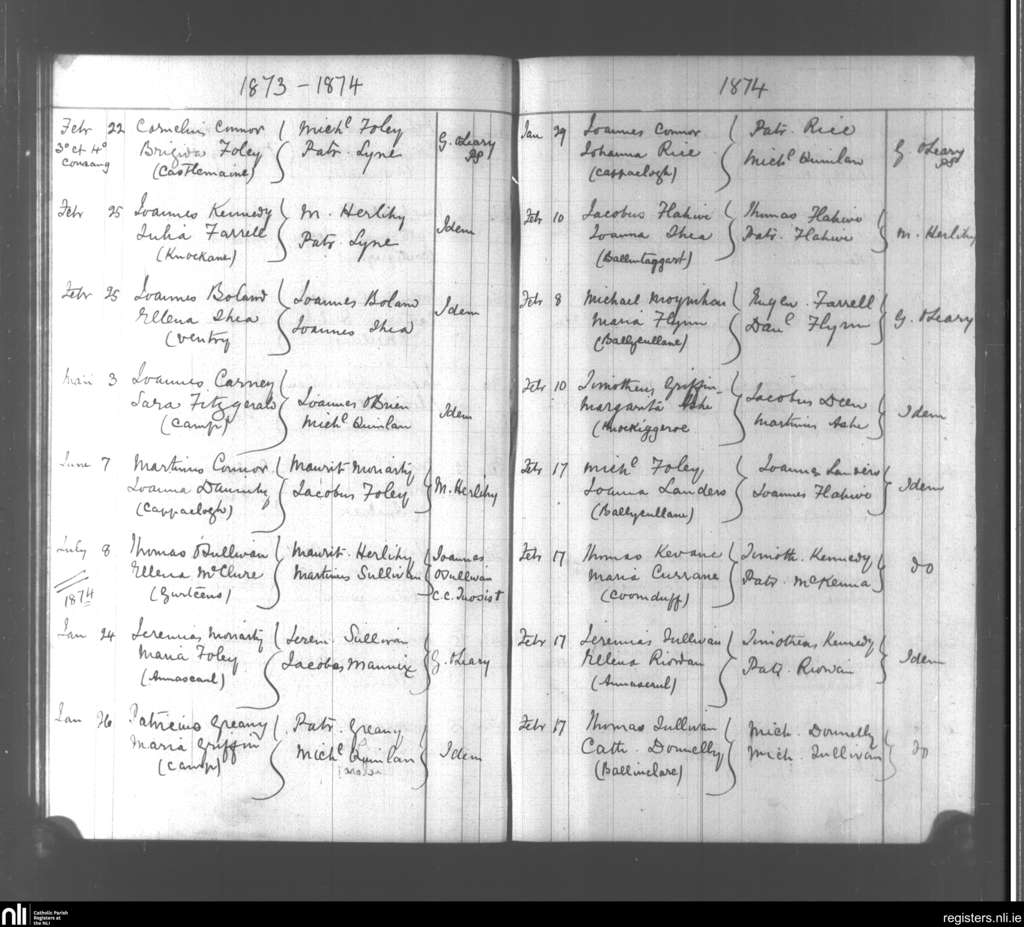 1873 – 1874
Febr 22 Cornelius Connor Mich^l Foley G. O'Leary
3° et 4° Brigida Foley Patr. Lyne PP
Consang (Castlemaine)
Febr 25 Joannes Kennedy M. Herlihy Idem
Julia Farrell Patr. Lyne
(Knockane)
Febr 25 Joannes Boland Joannes Boland Idem
Ellena Shea Joannes Shea
(Ventry
3 Joannes Carney
Sara Fitzgerald Joannes O'Brien Idem
(Camp) Mich^l Quinlan
June 7 Martinus Connor Maurit Moriarty M. Herlihy
Joanna Jacobus Foley
(Cappaclogh)
July 8 Thomas O'Sullivan Maurit. Herlihy Joannes
Ellena McClure Martinus Sullivan O'Sullivan
(Gurteens) C.C. Tuosist
1874
Jan 24 Jeremias Moriarty Jerem. Sullivan G. O'Leary
Maria Foley Jacobus Mannix
(Annascaul)
Jan 26 Patricius Greany Patr. Greany Idem
Maria Griffin Mich^l Quinlan
(Camp)
1874
Jan 29 Joannes Connor Patr. Rice G O'Leary
Johanna Rice Mich^l Quinlan PP
(Cappaclogh)
Febr 10 Jacobus Flahive Thomas Flahive M. Herlihy
Joanna Shea Patr. Flahive
(Ballintaggart)
Feb 8 Michael Moynihan Eugen. Farrell G. O'Leary
Maria Flynn Dan^l Flynn
(Ballycullane)
Febr 10 Timotheus Griffin Jacobus Deen Idem
Margarita Ashe Martinus Ashe
(Knockiggeroe
Febr 17 Mich^l Foley Joannes Landers Idem
Joanna Landers Joannes Flahive
(Ballycullane)
Febr 17 Thomas Kevane Timoth. Kennedy Do
Maria Currane Patr. McKenna
(Coomduff)
Febr 17 Jeremias Sullivan Timotheus Kennedy Idem
Ellena Riordan Patr. Riordan
(Annascaul)
Febr 17 Thomas Sullivan Mich. Donnelly Do
Cath. Donnelly Mich. Sullivan
(Ballinclare)
nli Catholic Parish
Registers at
the NLI
registers.nli.ie